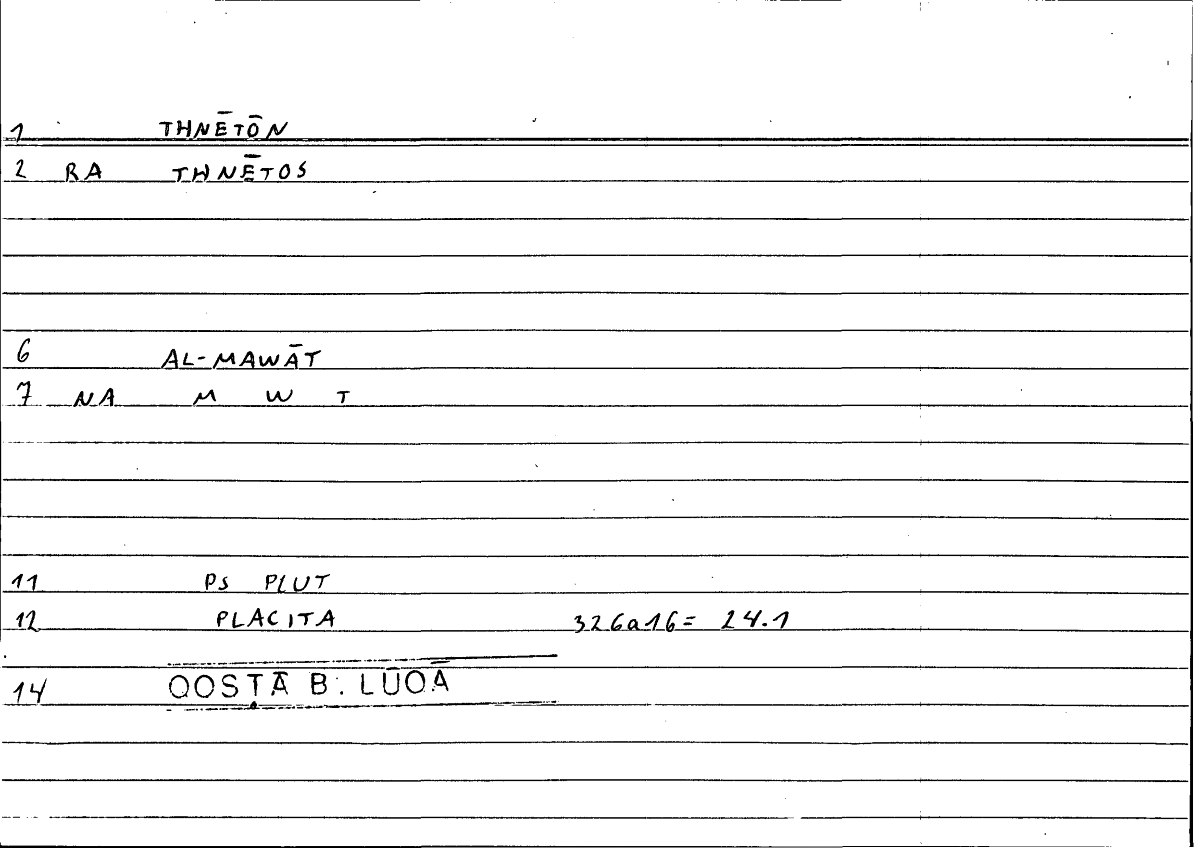 1 THNĒTŌN
2 RA THNĒTOS
6 AL-MAWĀT
7 NA M W T
11 PS PLUT
12 PLACITA 326a16= 24.1
14 QOSṬĀ B. LŪQĀ